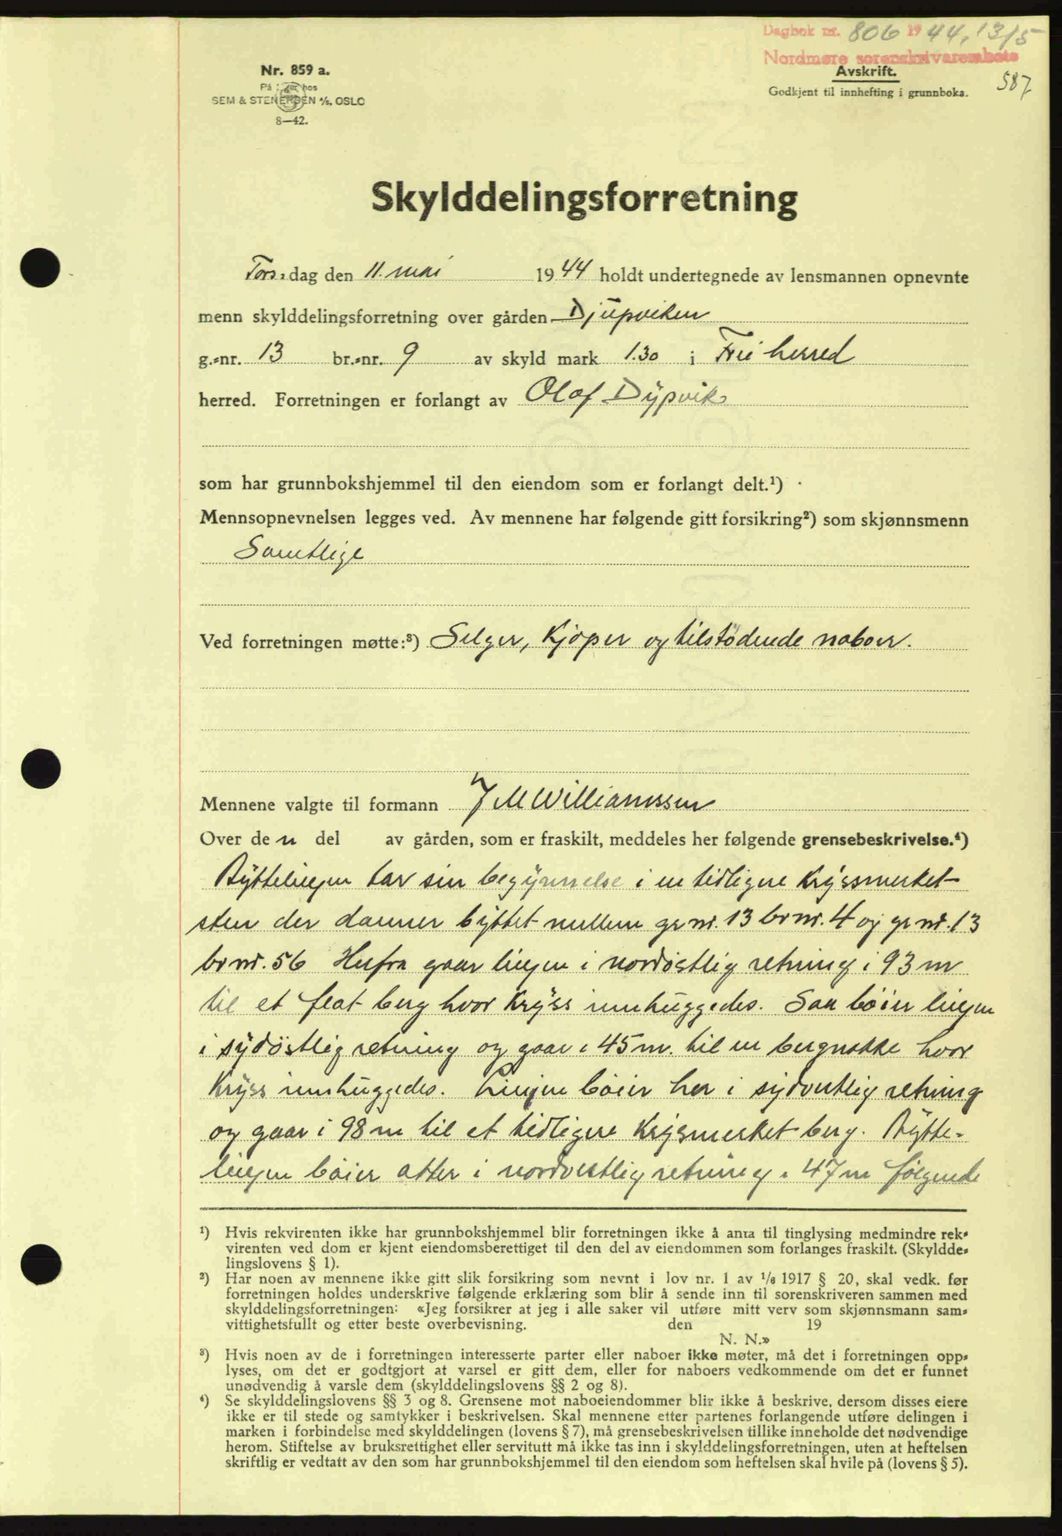 Dagbok nr. 806 1944, 13/5
Nordmøre sorenskrivarembete
Nr. 859 a.
SEM & STENERSEN A/S, OSLO
8—42.
Avskrift.
Godkjent til innhefting i grunnboka.
587
Skylddelingsforretning
Tors.dag den 11. mai 1944 holdt undertegnede av lensmannen opnevnte
menn skylddelingsforretning over gården Djupviken
g.-nr. 13 br.-nr. 9 av skyld mark 1.30 i Frei herred
herred. Forretningen er forlangt av Olaf Dypvik
som har grunnbokshjemmel til den eiendom som er forlangt delt.¹)
Mennsopnevnelsen legges ved. Av mennene har følgende gitt forsikring²) som skjønnsmenn
Samtlige
Ved forretningen møtte:³) Selger, Kjøper og tilstödende naboer.
Mennene valgte til formann J M Williamssen
Over den del av gården, som er fraskilt, meddeles her følgende grensebeskrivelse.⁴)
Býttelinjen tar sin begýnnelse i en tidligere Krýssmerket
sten der danner býttet mellem gr nr. 13 br nr. 4 og gr nr. 13
br nr. 56 Herfra gaar linjen i nordöstlig retning i 93 m
til et flat berg hvor Krýss innhuggedes. Saa böier linjen
i sýdöstlig retning og gaar i 45 m. til en bergnakke hvor
Krýss innhuggedes. Linjen böier her i sýdvestlig retning
og gaar i 98 m til et tidligere Krýsmerket berg. Býtte-
linjen böier atter i nordvestlig retning i 47 m følgende
¹) Hvis rekvirenten ikke har grunnbokshjemmel blir forretningen ikke å anta til tinglysing medmindre rek-
virenten ved dom er kjent eiendomsberettiget til den del av eiendommen som forlanges fraskilt. (Skyldde-
lingslovens § 1).
²) Har noen av mennene ikke gitt slik forsikring som nevnt i lov nr. 1 av 1/6 1917 § 20, skal vedk. før
forretningen holdes underskrive følgende erklæring som blir å sende inn til sorenskriveren sammen med
skylddelingsforretningen: «Jeg forsikrer at jeg i alle saker vil utføre mitt verv som skjønnsmann sam-
vittighetsfullt og etter beste overbevisning. den 19
N. N.»
³) Hvis noen av de i forretningen interesserte parter eller naboer ikke møter, må det i forretningen opp-
lyses, om det er godtgjort at varsel er gitt dem, eller for naboers vedkommende om det er funnet
unødvendig å varsle dem (skylddelingslovens §§ 2 og 8).
⁴) Se skylddelingslovens §§ 3 og 8. Grensene mot naboeiendommer blir ikke å beskrive, dersom disses eiere
ikke er til stede og samtykker i beskrivelsen. Skal mennene etter partenes forlangende utføre delingen i
marken i forbindelse med skylddelingen (lovens § 7), må grensebeskrivelsen tillike inneholde det nødvendige
herom. Stiftelse av bruksrettighet eller servitutt må ikke tas inn i skylddelingsforretningen, uten at heftelsen
skriftlig er vedtatt av den som har grunnbokshjemmel til den eiendom som heftelsen skal hvile på (lovens § 5).